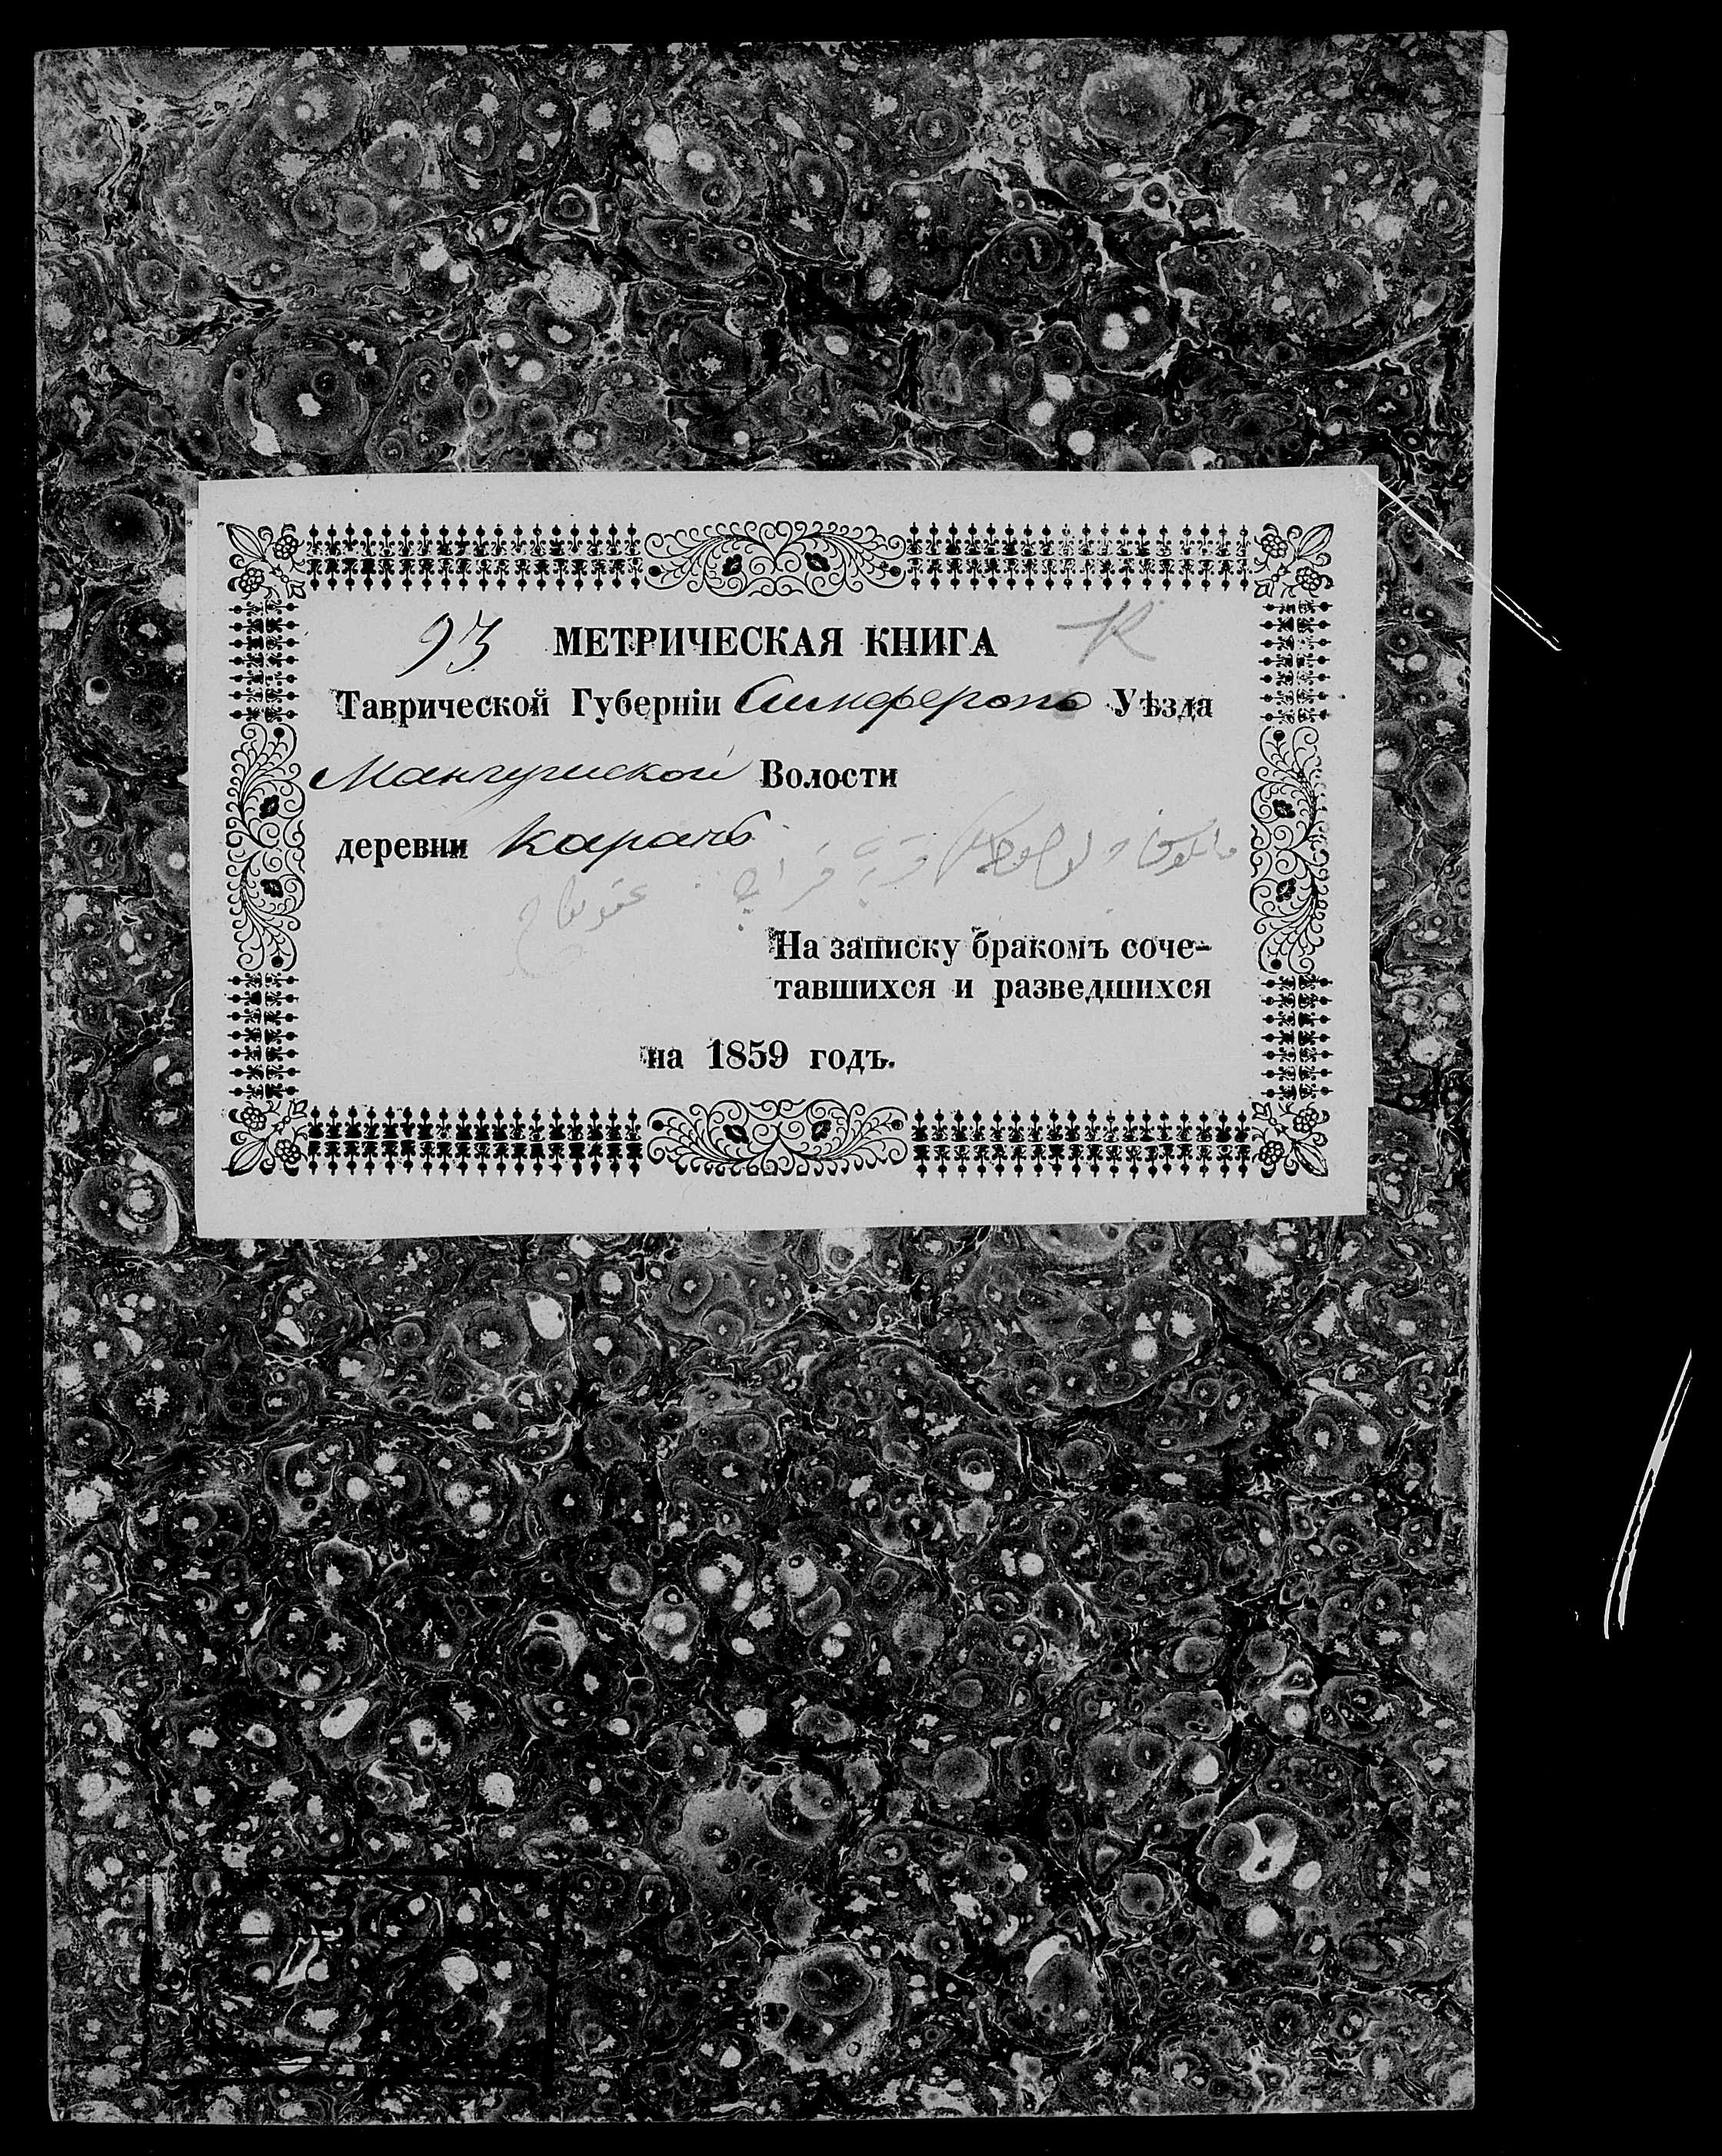 93 МЕТРИЧЕСКАЯ КНИГА К
Таврической Губерніи Симферопо Уѣзда
Мангушской Волости
деревни Карачъ
На записку бракомъ соче-
тавшихся и разведшихся
на 1859 годъ.